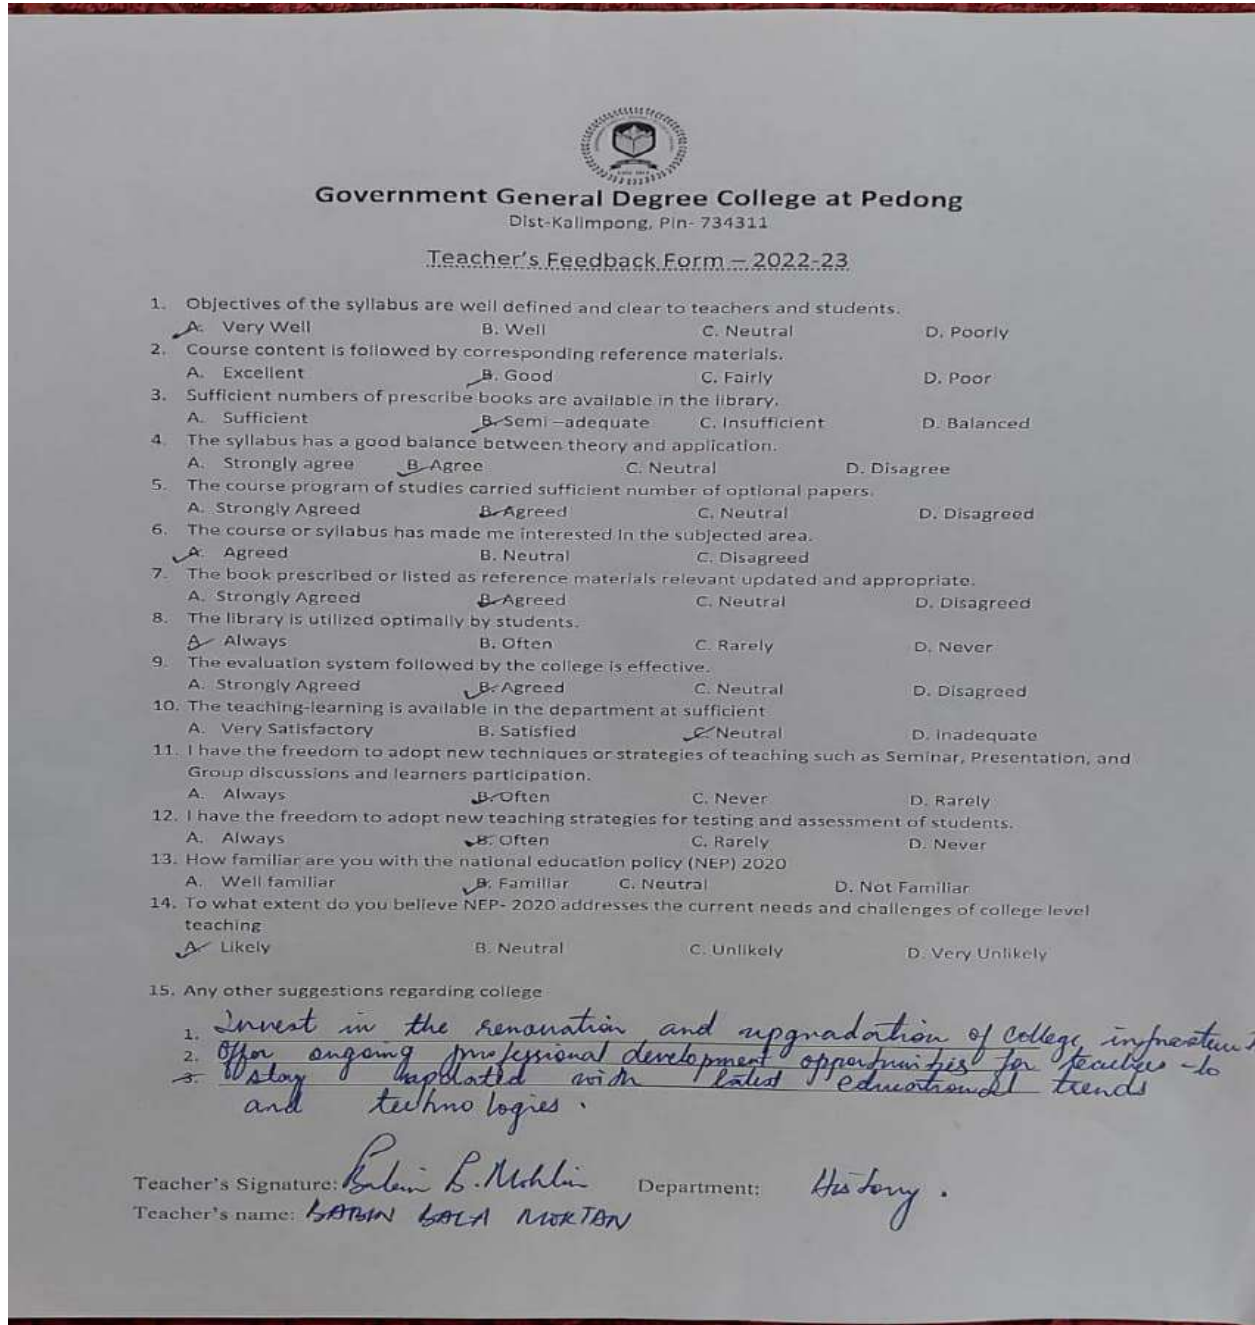 Government General Degree College at Pedong
Dist-Kalimpong, Pin- 734311
Teacher's Feedback Form – 2022-23
1. Objectives of the syllabus are well defined and clear to teachers and students.
A. Very Well B. Well C. Neutral D. Poorly
2. Course content is followed by corresponding reference materials.
A. Excellent B. Good C. Fairly D. Poor
3. Sufficient numbers of prescribe books are available in the library.
A. Sufficient B. Semi –adequate C. Insufficient D. Balanced
4. The syllabus has a good balance between theory and application.
A. Strongly agree B. Agree C. Neutral D. Disagree
5. The course program of studies carried sufficient number of optional papers.
A. Strongly Agreed B. Agreed C. Neutral D. Disagreed
6. The course or syllabus has made me interested in the subjected area.
A. Agreed B. Neutral C. Disagreed
7. The book prescribed or listed as reference materials relevant updated and appropriate.
A. Strongly Agreed B. Agreed C. Neutral D. Disagreed
8. The library is utilized optimally by students.
A. Always B. Often C. Rarely D. Never
9. The evaluation system followed by the college is effective.
A. Strongly Agreed B. Agreed C. Neutral D. Disagreed
10. The teaching-learning is available in the department at sufficient
A. Very Satisfactory B. Satisfied C. Neutral D. Inadequate
11. I have the freedom to adopt new techniques or strategies of teaching such as Seminar, Presentation, and
Group discussions and learners participation.
A. Always B. Often C. Never D. Rarely
12. I have the freedom to adopt new teaching strategies for testing and assessment of students.
A. Always B. Often C. Rarely D. Never
13. How familiar are you with the national education policy (NEP) 2020
A. Well familiar B. Familiar C. Neutral D. Not Familiar
14. To what extent do you believe NEP- 2020 addresses the current needs and challenges of college level
teaching
A. Likely B. Neutral C. Unlikely D. Very Unlikely
15. Any other suggestions regarding college
1. Invest in the renovation and upgradation of college
2. Offer ongoing professional development opportunities for teachers to
3. stay updated with latest educational trends
and technologies.
Teacher's Signature: Department: History.
Teacher's name: BABIN BALA MOKTAN